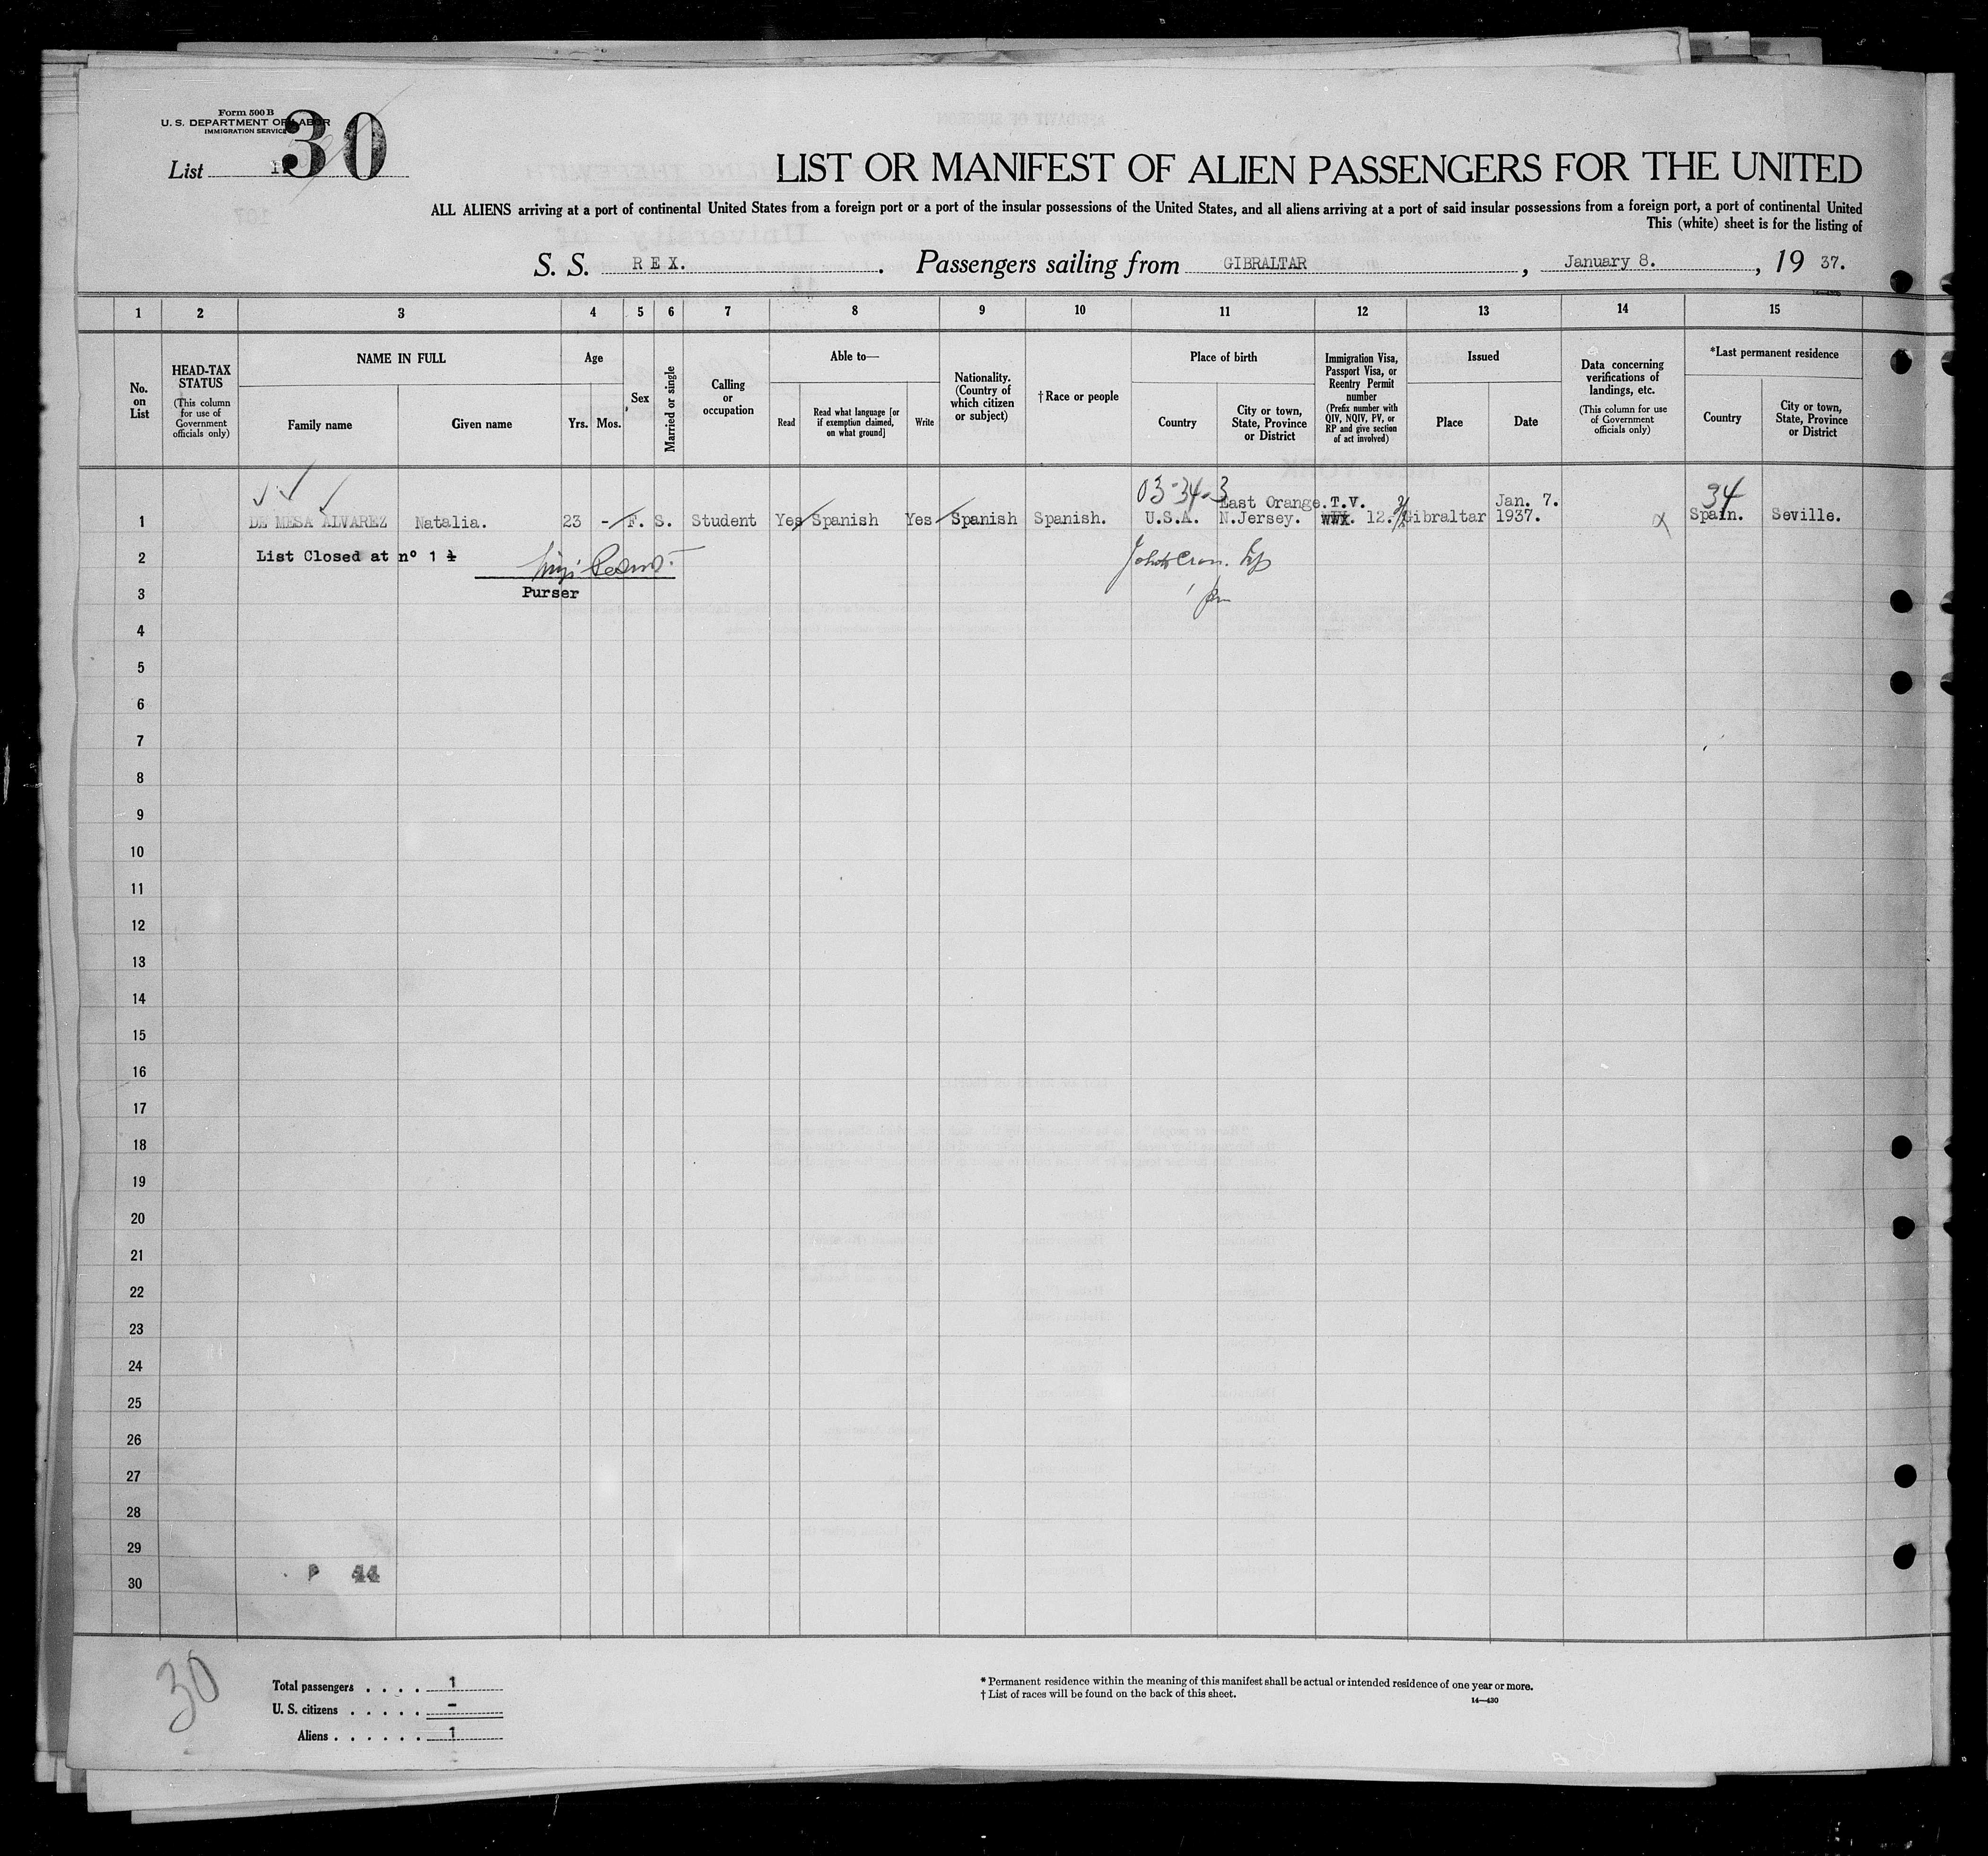 Form 500 B
U. S. DEPARTMENT OF LABOR
IMMIGRATION SERVICE
30
List
LIST OR MANIFEST OF ALIEN PASSENGERS FOR THE UNITED
ALL ALIENS arriving at a port of continental United States from a foreign port or a port of the insular possessions of the United States, and all aliens arriving at a port of said insular possessions from a foreign port, a port of continental United
This (white) sheet is for the listing of
S. S. REX. . Passengers sailing from GIBRALTAR , January 8. , 19 37.
1 2 3 4 5 6 7 8 9 10 11 12 13 14 15
No. on List
HEAD-TAX STATUS
(This column for use of Government officials only)
NAME IN FULL
Family name
Given name
Age
Yrs.
Mos.
Sex
Married or single
Calling or occupation
Able to—
Read
Read what language [or if exemption claimed, on what ground]
Write
Nationality. (Country of which citizen or subject)
† Race or people
Place of birth
Country
City or town, State, Province or District
Immigration Visa, Passport Visa, or Reentry Permit number
(Prefix number with QIV, NQIV, PV, or RP and give section of act involved)
Issued
Place
Date
Data concerning verifications of landings, etc.
(This column for use of Government officials only)
*Last permanent residence
Country
City or town, State, Province or District
03-34-3 34
East Orange. T.V. Jan. 7.
1 DE MESA ALVAREZ Natalia. 23 - F. S. Student Yes Spanish Yes Spanish Spanish. U.S.A. N.Jersey. 12. Gibraltar 1937. Spain. Seville.
2 List Closed at nº 1
3 Purser
4
5
6
7
8
9
10
11
12
13
14
15
16
17
18
19
20
21
22
23
24
25
26
27
28
29
P 44
30
30
Total passengers . . . . 1
U. S. citizens . . . . . -
Aliens . . . . . . 1
* Permanent residence within the meaning of this manifest shall be actual or intended residence of one year or more.
† List of races will be found on the back of this sheet.
14—430